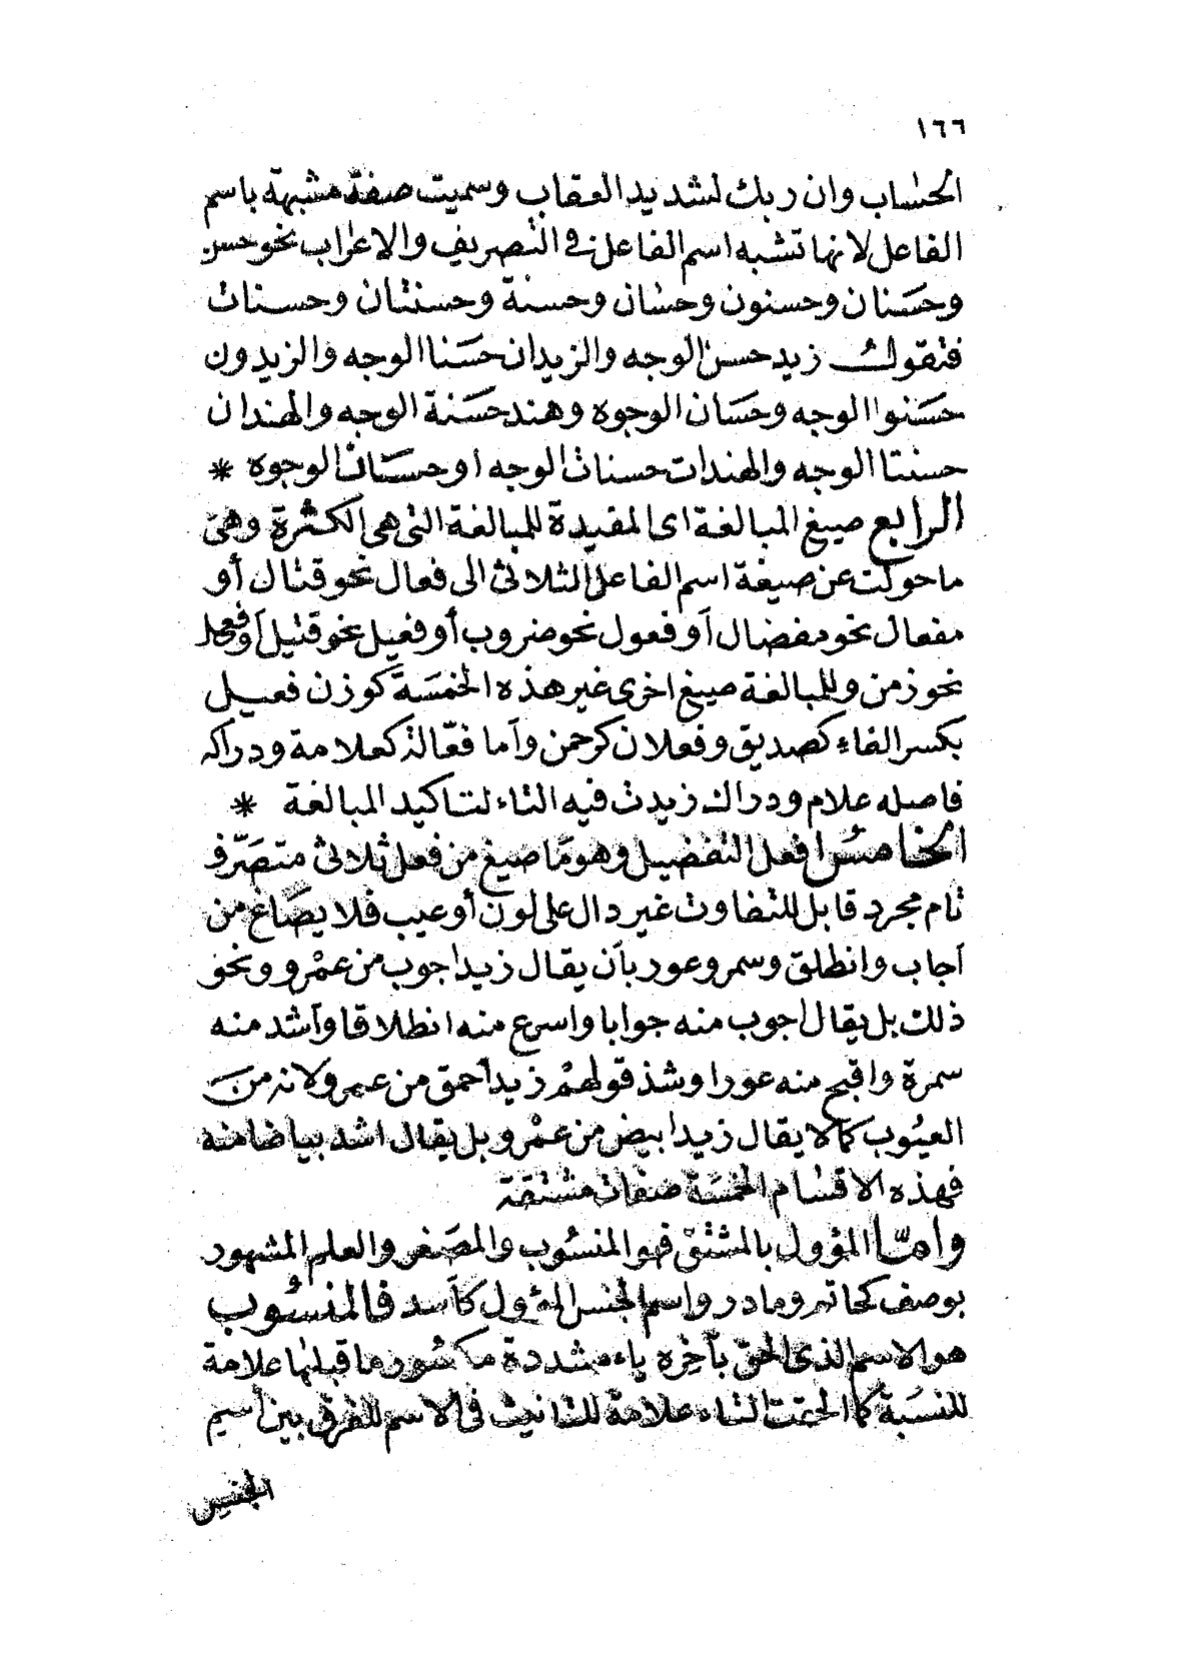 ١٦٦
الحساب وان ربك لشديد العقاب وسميت صفة مشبهة باسم
الفاعل لانها تشبه اسم الفاعل في التصريف والاعراب نحو حسن
وحسنان وحسنون وحسان وحسنة وحسنتان وحسنات
فتقول زيد حسن الوجه والزيدان حسنا الوجه والزيدون
حسنوا الوجه وحسان الوجوه وهند حسنة الوجه والهندان
حسنتا الوجه والهندات حسنات الوجه او حسنات الوجوه *
الرابع صيغ المبالغة اى المفيدة للمبالغة التى هى الكثرة وهى
ما حولت عن صيغة اسم الفاعل الثلاثى الى فعال نحو قتال أو
مفعال نحو مفضال أو فعول نحو ضروب أو فعيل نحو قتيل أو فعل
نحو زمن وللمبالغة صيغ اخرى غير هذه الخمسة كوزن فعيل
بكسر الفاء كصديق وفعلان كرحمن وأما فعّالة كعلامة ودراكه
فاصله علام ودراك زيدت فيه التاء لتاكيد المبالغة *
الخامس افعل التفضيل وهو ما صيغ من فعل ثلاثى متصرّف
تام مجرد قابل للتفاوت غير دال على لون أو عيب فلا يصاغ من
أجاب وانطلق وسمر وعور بأن يقال زيد اجوب من عمْرو ونحو
ذلك بل يقال اجوب منه جوابا واسرع منه انطلاقا وأشد منه
سمرة واقبح منه عورا وشذ قولهمْ زيد أحمق من عمرو لانه من
العيوب كما لا يقال زيد ابيض من عمْرو بل يقال اشد بياضا منه
فهذه الاقسام الخمسة صفات مشتقة
وامّا المؤول بالمشتق فهو المنسوب والمصغر والعلم المشهور
بوصف كحاتم ومادر واسم الجنس المؤول كأسد فالمنسُوب
هو الاسم الذى الحق بآخره ياء مشددة مكسور ما قبلها علامة
للنسبة كما الحقت التاء علامة للتانيث فى الاسم للفرق بين اسيم
الجنس